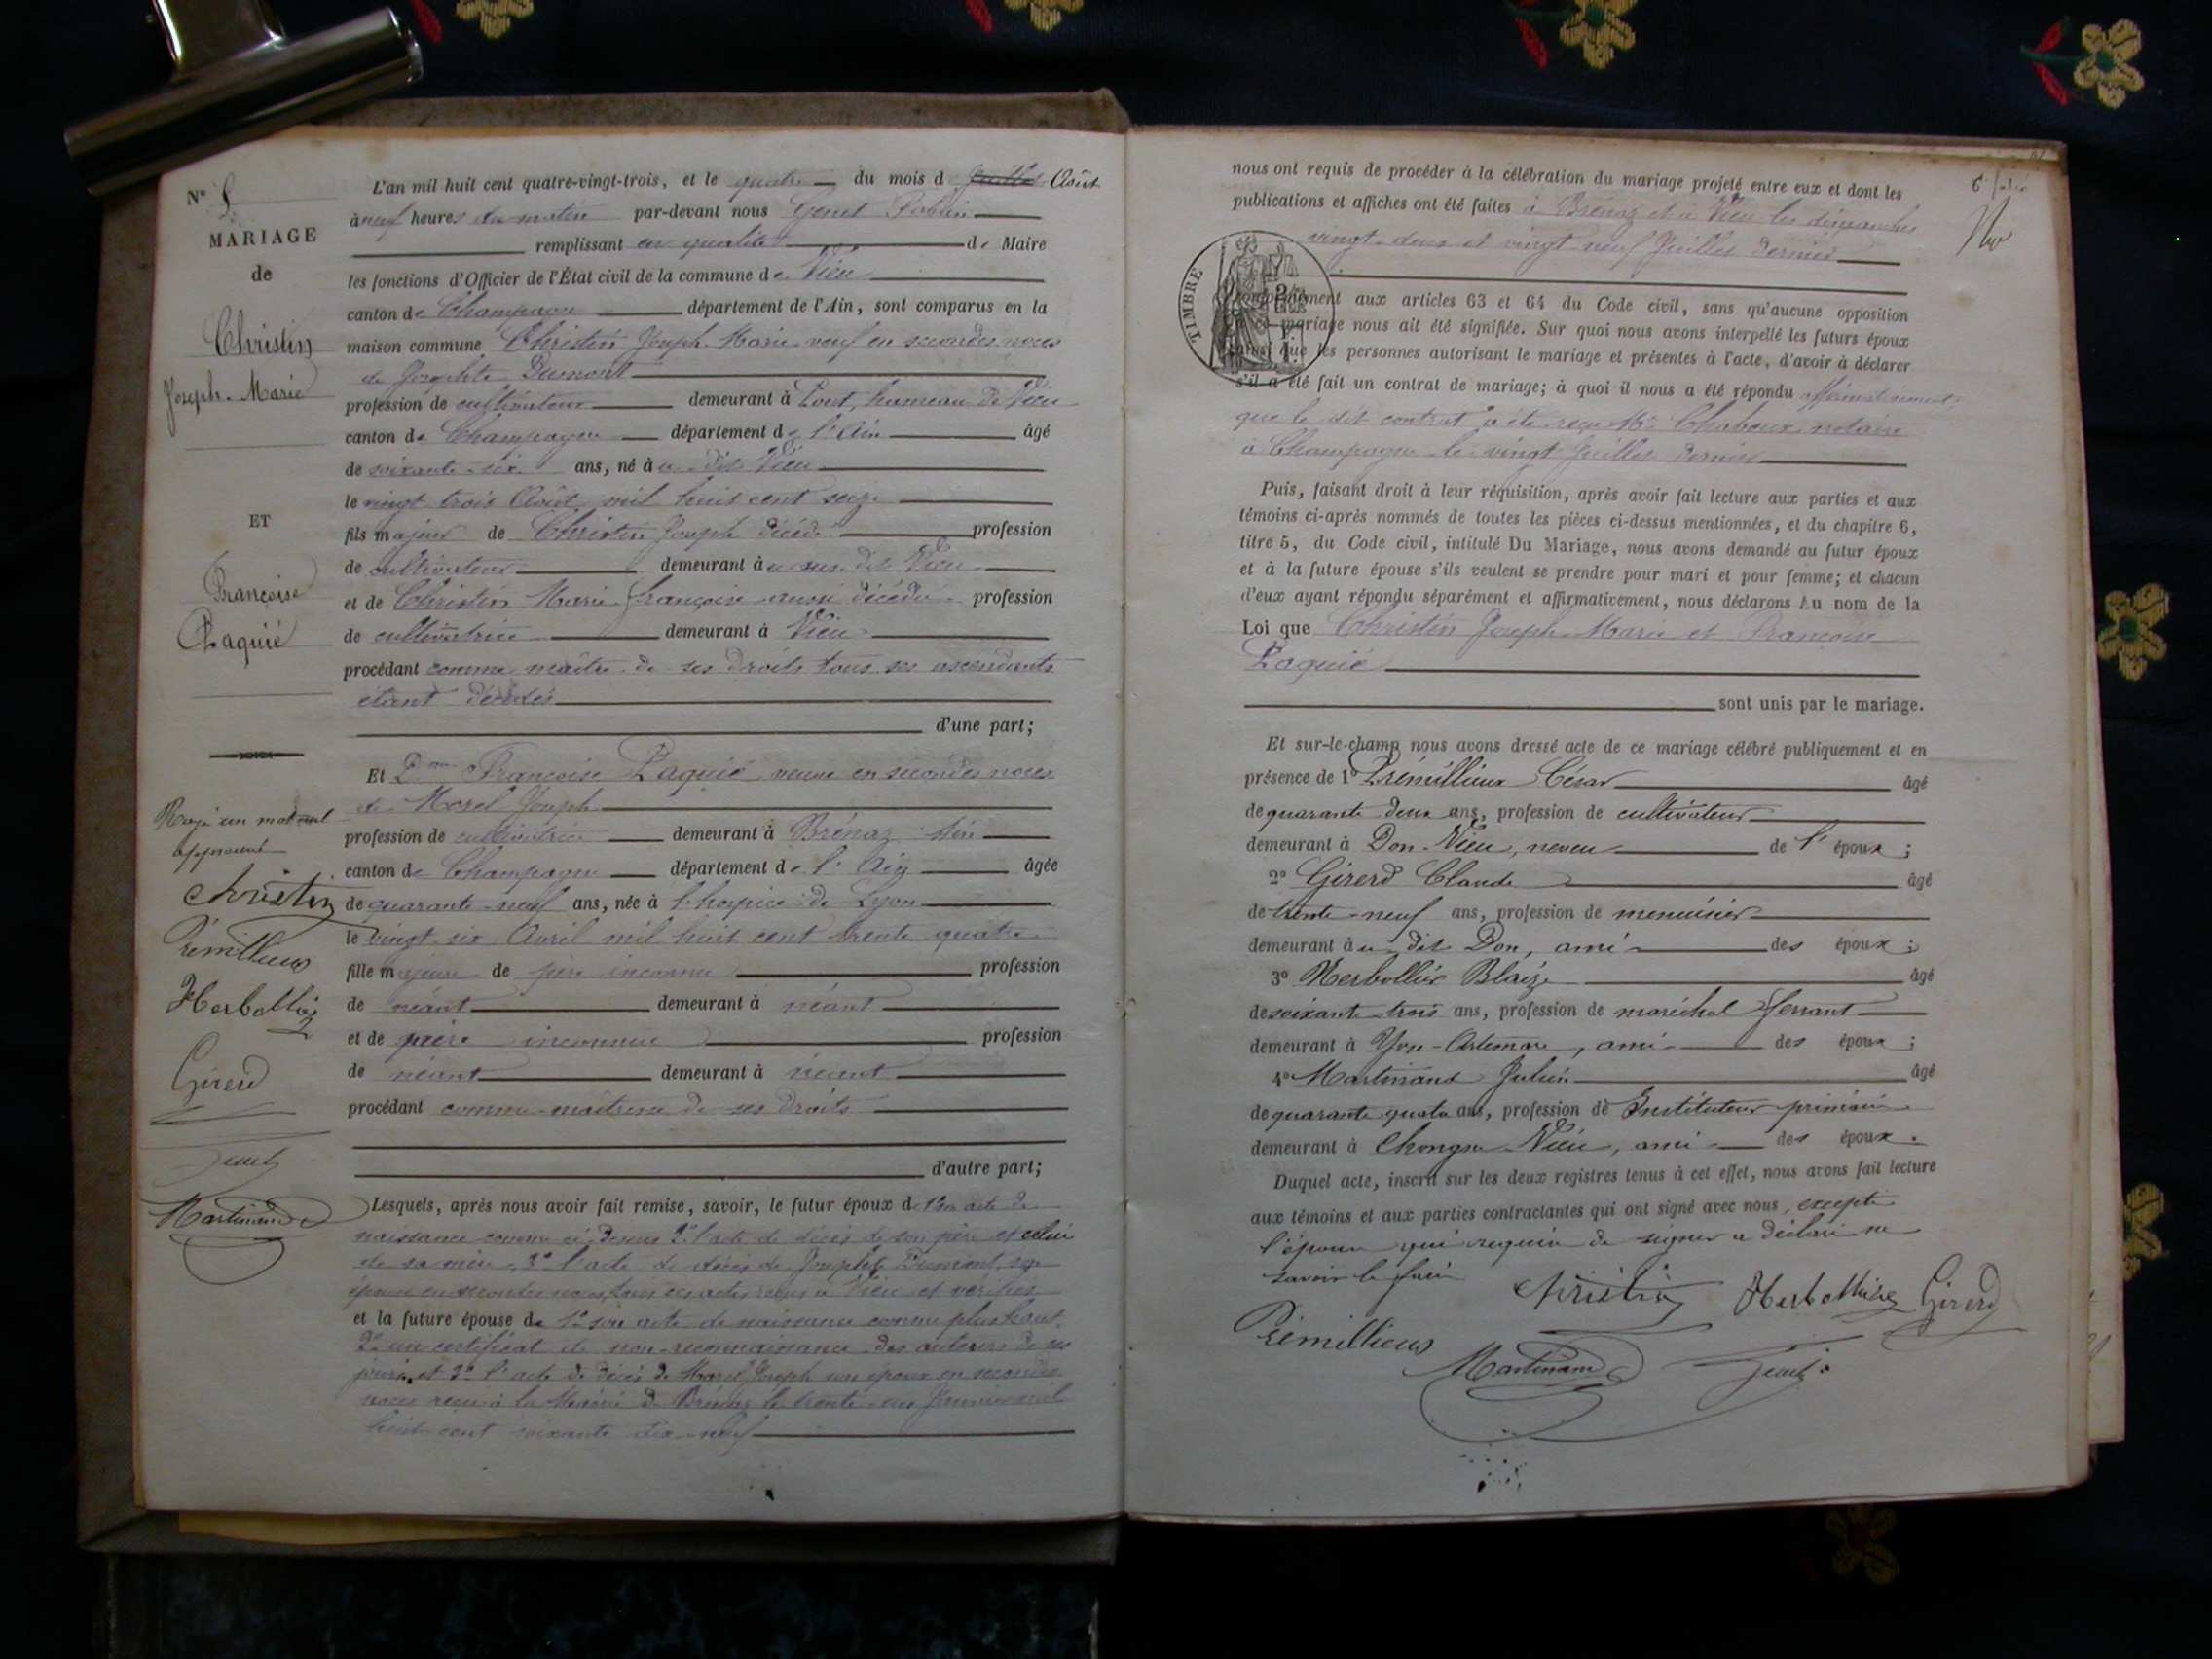 N° 5
MARIAGE
de
Christin
Joseph-Marie
ET
Françoise
Paquié
Rayé un mot nul
approuvé
Christin
Prémillieux
Herbollier
Girerd
Genet
Martinand
L'an mil huit cent quatre-vingt-trois, et le quatre du mois d Juillet Août
à neuf heures du matin par-devant nous Genet
remplissant en qualité de Maire
les fonctions d'Officier de l'État civil de la commune de Vieu
canton de Champagne département de l'Ain, sont comparus en la
maison commune Christin Joseph-Marie veuf en secondes noces
de Josephte Dumont
profession de cultivateur demeurant à Pont, hameau de Vieu
canton de Champagne département de l'Ain âgé
de soixante-six ans, né à u dit Vieu
le vingt trois Août mil huit cent seize
fils majeur de Christin Joseph décédé profession
de cultivateur demeurant à u sus dit Vieu
et de Christin Marie-Françoise aussi décédée profession
de cultivatrice demeurant à Vieu
procédant comme maître de ses droits tous ses ascendants
étant décédés
d'une part;
Et Dme Françoise Paquié veuve en secondes noces
de Morel Joseph
profession de cultivatrice demeurant à Brénaz Ain
canton de Champagne département de l'Ain âgée
de quarante-neuf ans, née à l'hospice de Lyon
le vingt six Avril mil huit cent trente quatre
fille majeure de père inconnu profession
de néant demeurant à néant
et de mère inconnue profession
de néant demeurant à néant
procédant comme maîtresse de ses droits
d'autre part;
Lesquels, après nous avoir fait remise, savoir, le futur époux de 1° son acte de
naissance comme ci-dessus 2° l'acte de décès de son père et celui
de sa mère, 3° l'acte de décès de Josephte Dumont, son
épouse en secondes noces, tous ces actes reçus à Vieu et vérifiés
et la future épouse de 1° son acte de naissance comme plus haut,
2° un certificat de non-reconnaissance des auteurs de ses
jours, et 3° l'acte de décès de Morel Joseph son époux en secondes
noces reçu à la Mairie de Brénaz le trente-un Janvier mil
huit cent soixante dix-neuf
nous ont requis de procéder à la célébration du mariage projeté entre eux et dont les
publications et affiches ont été faites à Brénaz et à Vieu les dimanches
vingt-deux et vingt-neuf Juillet dernier
TIMBRE
conformément aux articles 63 et 64 du Code civil, sans qu'aucune opposition
à ce mariage nous ait été signifiée. Sur quoi nous avons interpellé les futurs époux
ainsi que les personnes autorisant le mariage et présentes à l'acte, d'avoir à déclarer
s'il a été fait un contrat de mariage; à quoi il nous a été répondu affirmativement,
que le dit contrat a été reçu Me Chaboux notaire
à Champagne le vingt Juillet dernier
Puis, faisant droit à leur réquisition, après avoir fait lecture aux parties et aux
témoins ci-après nommés de toutes les pièces ci-dessus mentionnées, et du chapitre 6,
titre 5, du Code civil, intitulé Du Mariage, nous avons demandé au futur époux
et à la future épouse s'ils veulent se prendre pour mari et pour femme; et chacun
d'eux ayant répondu séparément et affirmativement, nous déclarons Au nom de la
Loi que Christin Joseph-Marie et Françoise
Paquié
sont unis par le mariage.
Et sur-le-champ nous avons dressé acte de ce mariage célébré publiquement et en
présence de 1° Prémillieux César âgé
de quarante deux ans, profession de cultivateur
demeurant à Don-Vieu, neveu de l' époux;
2° Girerd Claude âgé
de trente-neuf ans, profession de menuisier
demeurant à u dit Don, ami des époux;
3° Herbollier Blaize âgé
de soixante-trois ans, profession de maréchal ferrant
demeurant à Yon-Artemare, ami des époux;
4° Martinand Julien âgé
de quarante quatre ans, profession de Instituteur primaire
demeurant à Chongne Vieu, ami des époux.
Duquel acte, inscrit sur les deux registres tenus à cet effet, nous avons fait lecture
aux témoins et aux parties contractantes qui ont signé avec nous, excepté
l'épouse qui requise de signer a déclaré ne
savoir le faire
Christin Herbollier Girerd
Prémillieux
Martinand Genet